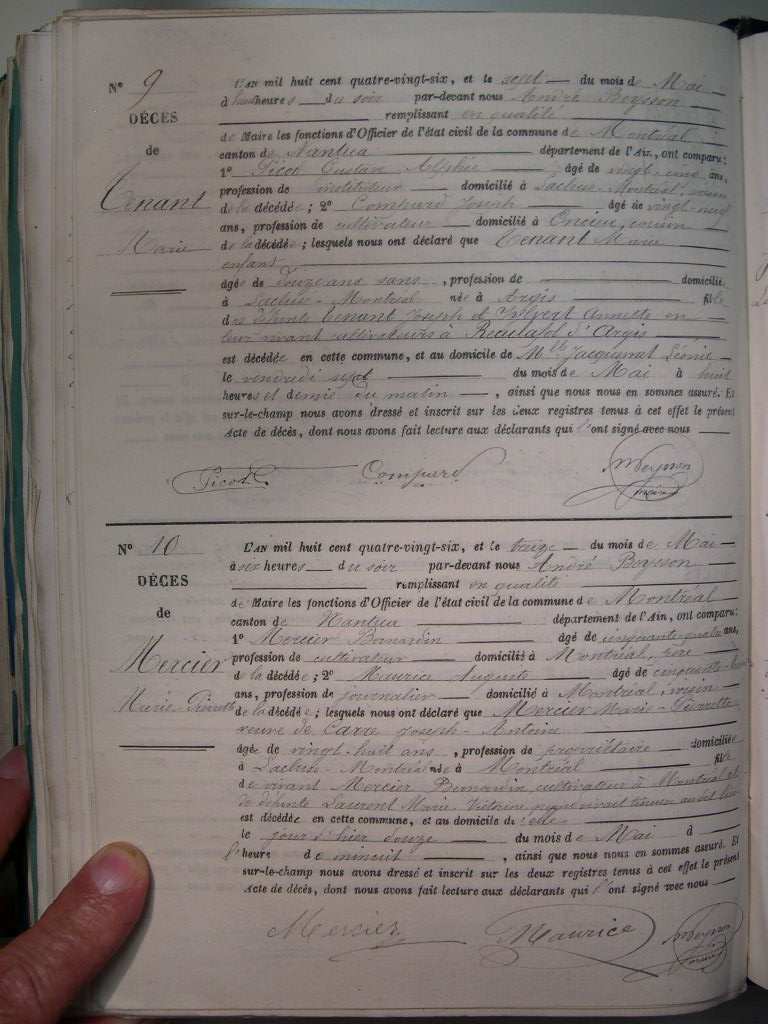 N° 9
DÉCES
de
Tenant
Marie
L'AN mil huit cent quatre-vingt-six, et le sept du mois de Mai
à heures du soir par-devant nous André
remplissant en qualité
de Maire les fonctions d'Officier de l'état civil de la commune de Montréal
canton de Nantua département de l'Ain, ont comparu:
1° Picod Gustave Alphée âgé de vingt-cinq ans,
profession de instituteur domicilié à Lacluse-Montréal, voisin
de la décédée; 2° Compard Joseph âgé de vingt-neuf
ans, profession de cultivateur domicilié à Oncieu, cousin
de la décédée; lesquels nous ont déclaré que Tenant Marie
enfant
âgée de douze ans sans, profession de domiciliée
à Lacluse-Montréal née à Argis fille
des défunts Tenant Joseph et Annette en
leur vivant cultivateurs à Reculafol d'Argis
est décédée en cette commune, et au domicile de Mlle Jacquemet Léonie
le vendredi sept du mois de Mai à huit
heures et demie du matin, ainsi que nous nous en sommes assuré. Et
sur-le-champ nous avons dressé et inscrit sur les deux registres tenus à cet effet le présent
Acte de décès, dont nous avons fait lecture aux déclarants qui l'ont signé avec nous
Picod G. Compard
N° 10
DÉCES
de
Mercier
Marie-Pierrette
L'AN mil huit cent quatre-vingt-six, et le treize du mois de Mai
à six heures du soir par-devant nous André
remplissant en qualité
de Maire les fonctions d'Officier de l'état civil de la commune de Montréal
canton de Nantua département de l'Ain, ont comparu:
1° Mercier Bernardin âgé de cinquante-quatre ans,
profession de cultivateur domicilié à Montréal, père
de la décédée; 2° Maurice Auguste âgé de cinquante
ans, profession de journalier domicilié à Montréal, voisin
de la décédée; lesquels nous ont déclaré que Mercier Marie-Pierrette
veuve de Carre Joseph-Antoine
âgée de vingt-huit ans, profession de propriétaire domiciliée
à Lacluse-Montréal née à Montréal fille
de vivant Mercier Bernardin cultivateur à Montréal et
de défunte Laurent Marie-Victoire
est décédée en cette commune, et au domicile d'elle
le jour d'hier douze du mois de Mai à
l'heure de minuit, ainsi que nous nous en sommes assuré. Et
sur-le-champ nous avons dressé et inscrit sur les deux registres tenus à cet effet le présent
Acte de décès, dont nous avons fait lecture aux déclarants qui l'ont signé avec nous
Mercier Maurice